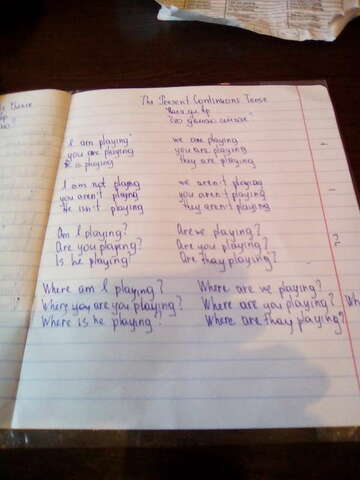 The Present Continuous Tense
I am playing we are playing
you are playing you are playing
He is playing they are playing
I am not playing we aren't playing
you aren't playing you aren't playing
He isn't playing They aren't playing
Am I playing? Are we playing?
Are you playing? Are you playing?
Is he playing? Are thay playing?
?
Where am I playing? Where are we playing?
Where you are you playing? Where are you playing?
Where is he playing? Where are thay playing?